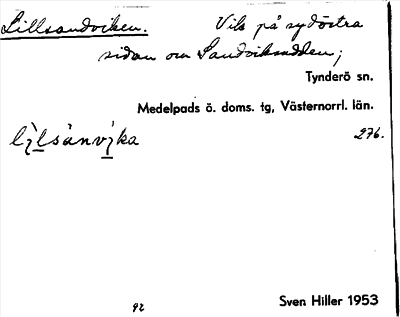 Lillsandviken. Vik på sydöstra
sidan om Sandviksudden;
Tynderö sn.
Medelpads ö. doms. tg, Västernorrl. län.
276.
92
Sven Hiller 1953